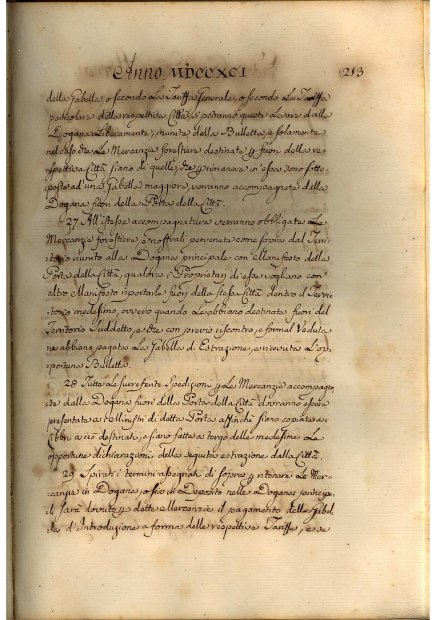 Anno MDCCXCI 213
della Gabella, o secondo La Tariffa Generale, o secondo La Tariffa
particolare delle respettive Città, si potranno queste Levare dalle
Dogane Liberamente, munite della Bulletta, e solamente
nel caso che Le Mercanzie forestiere destinate p fuori della re-
spettiva Città siano di quelle, che p rimanere in essa sono sotto-
poste ad una Gabella maggiore, verranno accompagnate dalla
Dogana fuori della Porta della Città.
27 All'istessa accompagnatura verranno obbligate Le
Mercanzie forestiere, o nostrali pervenute come sopra dal Terri-
torio riunito alla Dogana principale con Manifesto della
Porta della Città, qualora i Proprietari di esse vogliano con
altro Manifesto riportarle fuori della stessa Città dentro il Terri-
torio medesimo, ovvero quando Le abbiano destinate fuori del
Territorio Suddetto, e che con previo riscontro, e formal Veduta
ne abbiano pagata La Gabella di Estrazione, e ricevuta L'op-
portuna Bulletta.
28 Tutte Le surreferite Spedizioni p Le Mercanzie accompagna-
te dalla Dogana fuori della Porta della Città dovranno essere
presentate a i Ministri di detta Porta affinchè siano copiate a i
Libri a ciò destinati, e siano fatte a tergo delle medesime Le
opportune dichiarazioni della seguita estrazione dalla Città.
29 Spirati i termini assegnati di sopra p ritenere Le Mer-
canzie in Dogana, o sia in Deposito nelle Dogane principa-
li sarà dovuto p dette Mercanzie il pagamento della Gabel-
la d'Introduzione a forma delle respettive Tariffe, e se